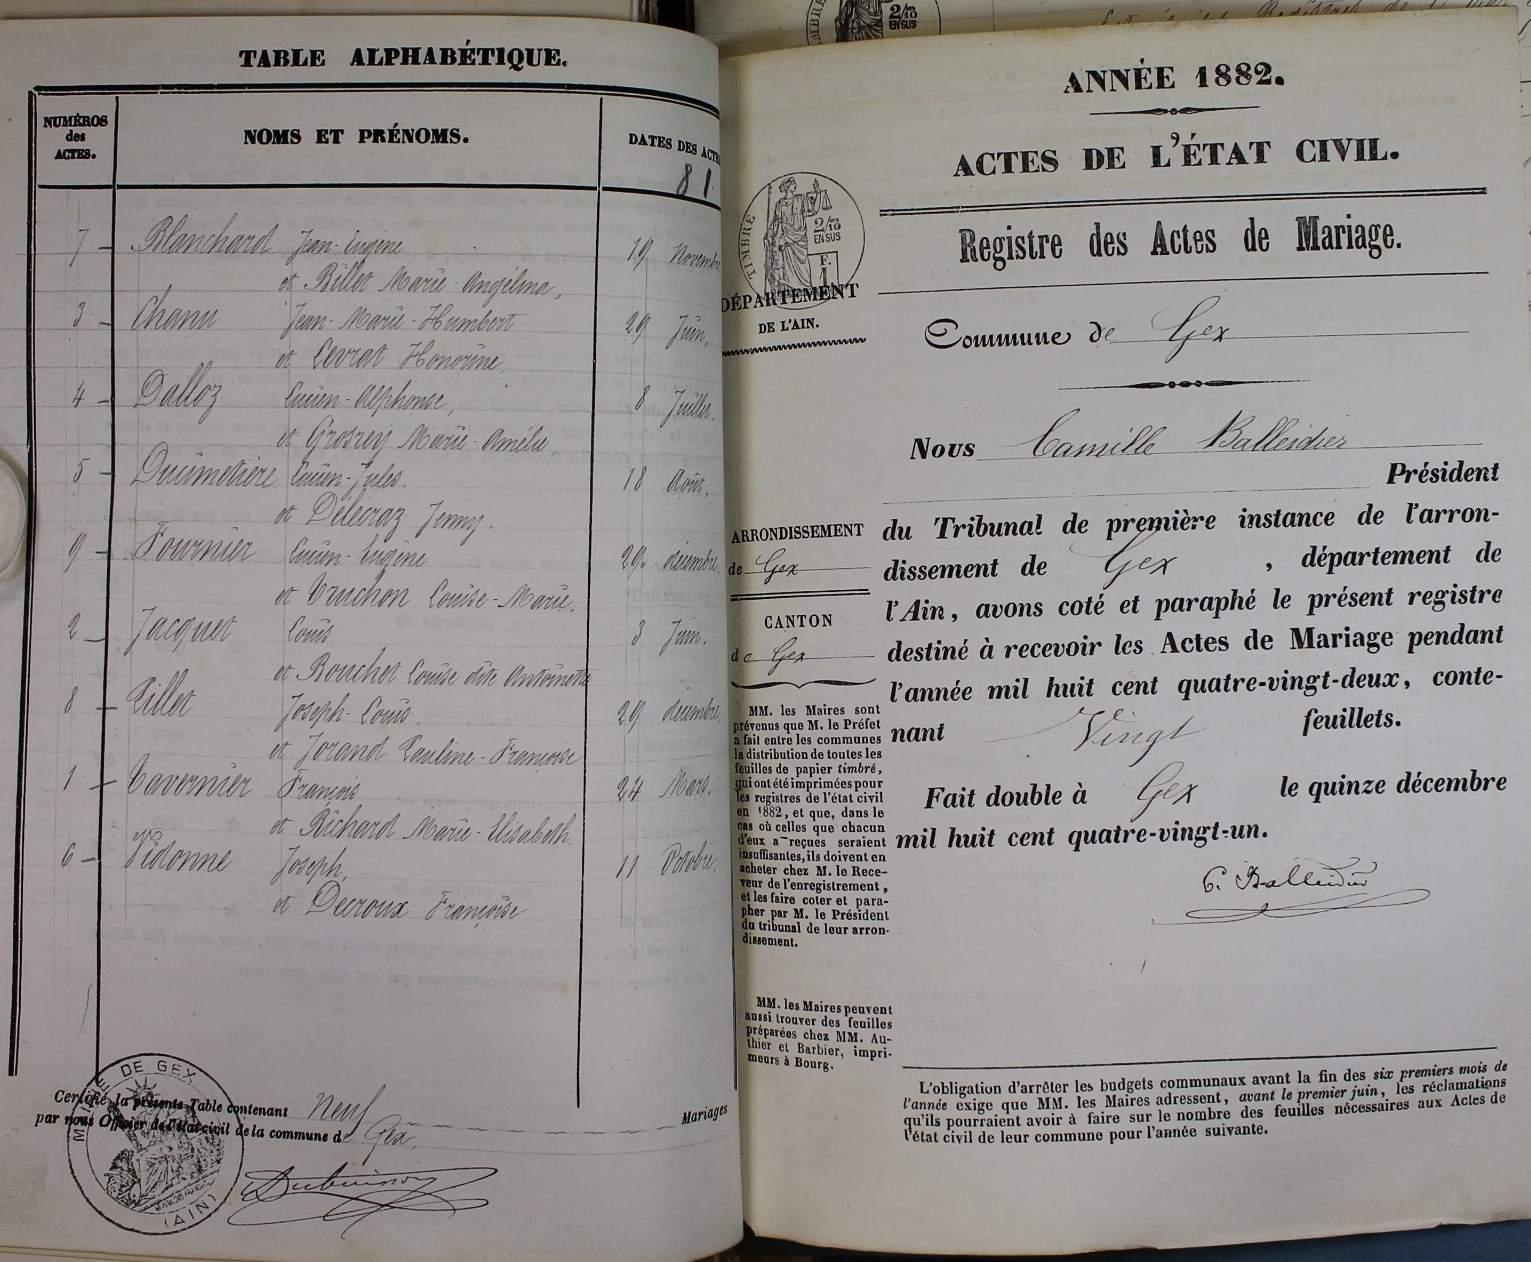 TABLE ALPHABÉTIQUE.
NUMÉROS
des
ACTES.
NOMS ET PRÉNOMS.
DATES DES ACTE
81
7 – Blanchard Jean-Eugène 19 Novembre
et Billet Marie-Angélina,
3 – Chanu Jean-Marie-Humbert 29 Juin,
et Levrat Honorine,
4 – Dalloz Lucien-Alphonse, 8 Juillet.
et Grosrey Marie-Amélie
5 – Duimetière Lucien-Jules. 18 Août,
et Délécraz Jenny.
9 – Fournier Lucien-Eugène 29 décembre,
et Truchon Louise-Marie,
2 – Jacquet Louis 3 Juin,
et Bouchet Louise dite Antoinette
8 – Pillet Joseph-Louis. 29 décembre,
et Jorand Pauline-Françoise
1 – Tavernier François 24 Mars.
et Richard Marie-Elisabeth.
6 – Vidonne Joseph, 11 Octobre,
et Decroux Françoise
MAIRIE DE GEX
(AIN)
Certifié la présente Table contenant Neuf Mariages
par nous Officier de l'état civil de la commune de Gex.
Dubuisson
2/10
EN SUS
ANNÉE 1882.
ACTES DE L'ÉTAT CIVIL.
Registre des Actes de Mariage.
TIMBRE
2/10
EN SUS
F.
1
DÉPARTEMENT
DE L'AIN.
Commune de Gex
Nous Camille Balleidier
Président
ARRONDISSEMENT
de Gex
CANTON
de Gex
du Tribunal de première instance de l'arron-
dissement de Gex, département de
l'Ain, avons coté et paraphé le présent registre
destiné à recevoir les Actes de Mariage pendant
l'année mil huit cent quatre-vingt-deux, conte-
nant Vingt feuillets.
Fait double à Gex le quinze décembre
mil huit cent quatre-vingt-un.
C. Balleidier
MM. les Maires sont
prévenus que M. le Préfet
a fait entre les communes
la distribution de toutes les
feuilles de papier timbré,
qui ont été imprimées pour
les registres de l'état civil
en 1882, et que, dans le
cas où celles que chacun
d'eux a reçues seraient
insuffisantes, ils doivent en
acheter chez M. le Rece-
veur de l'enregistrement,
et les faire coter et para-
pher par M. le Président
du tribunal de leur arron-
dissement.
MM. les Maires peuvent
aussi trouver des feuilles
préparées chez MM. Au-
thier et Barbier, impri-
meurs à Bourg.
L'obligation d'arrêter les budgets communaux avant la fin des six premiers mois de
l'année exige que MM. les Maires adressent, avant le premier juin, les réclamations
qu'ils pourraient avoir à faire sur le nombre des feuilles nécessaires aux Actes de
l'état civil de leur commune pour l'année suivante.